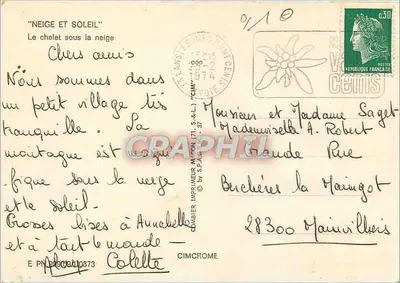 "NEIGE ET SOLEIL"
Le chalet sous la neige
Chers amis
Nous sommes dans
un petit village très
tranquille. La
montagne est magni
fique sous la neige
et le soleil.
Grosses bises à Annabelle
et à tout le monde -
Colette
E PN
COMBIER IMPRIMEUR MACON (71, S.-&-L.)
© by S.P.A.D.E.M.
CIMCROME
CRAPHIL
1974
0,30
POSTES
REPUBLIQUE FRANÇAISE
Monsieur et Madame Saget
Mademoiselle A. Robert
Grande Rue
Berchères la Maingot
28300 Mainvilliers